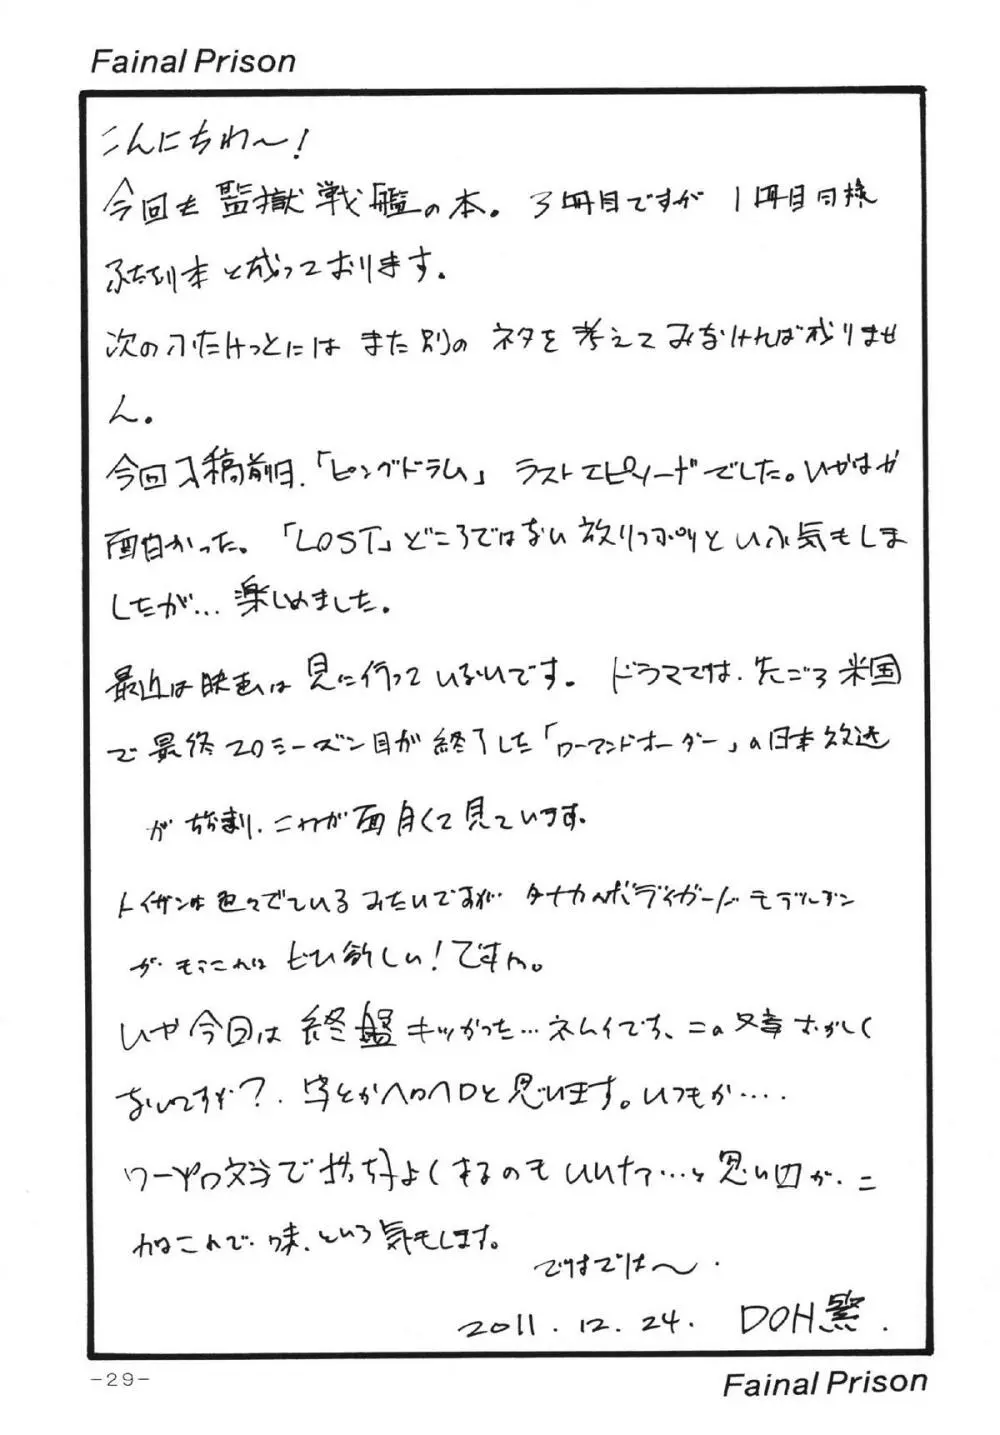 Fainal Prison
こんにちわ〜!
今回も監獄戦艦の本。3冊目ですが1冊目同様
ふたなり本と成っております。
次のふたけっとにはまた別のネタを考えてみなければ成りませ
ん。
今回入稿前日、「ピングドラム」ラストエピソードでした。いやはや
面白かった。「LOST」どころではない放りっぷりという気もしま
したが...楽しめました。
最近は映画は見に行っていないです。ドラマでは、先ごろ米国
で最終20シーズン目が終了した「ローアンドオーダー」の日本放送
が始まり、これが面白くて見ています。
トイガンは色々でているみたいですが、タナカのボディガードモデルガン
が、もうこれはぜひ欲しい!ですね。
いや今回は終盤キツかった...ネムイです、この文章おかしく
ないですか?、字とかヘロヘロと思います。いつもか....
ワープロ文字で打ち、よくするのもいいなァ...と思いつつ、こ
れはこれで、味、という気もします。
ではでは〜.
2011.12.24. DOH繁.
-29-
Fainal Prison